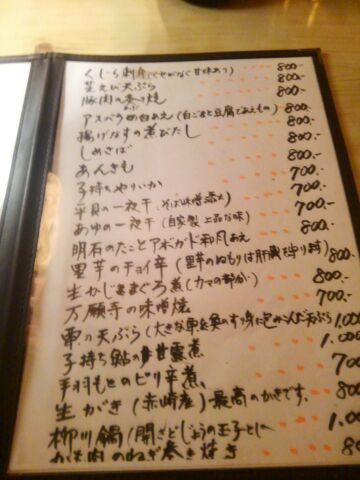 くじら刺身(くせがなく甘味あり) 800.-
芝えび天ぷら 800.-
豚肉の巻き焼 800.-
アスパラの白あえ(白ごまと豆腐であえもの) 800.-
揚げなすの煮びたし 800.-
しめさば 800.-
あんきも 800.-
子持ちやりいか 700.-
平貝の一夜干(そば味噌添え) 700.-
あゆの一夜干(自家製 上品な味) 700.-
明石のたことアボガド和風あえ 800.-
里芋のチョイ辛(里芋のぬめりは肝臓を守り〼) 700.-
生かじきまぐろ煮(カマの部分) 800.-
万願寺の味噌焼 700.-
の天ぷら(大きな を の 身に包みこんだ天ぷら) 1,000
子持ち鮎の甘露煮 1,000
手羽もとのピリ辛煮 700
生がき(赤崎産)最高のかきです。 800.
柳川鍋(開きどじょうの玉子とじ) 1,00
かも肉のねぎ巻き焼き 80